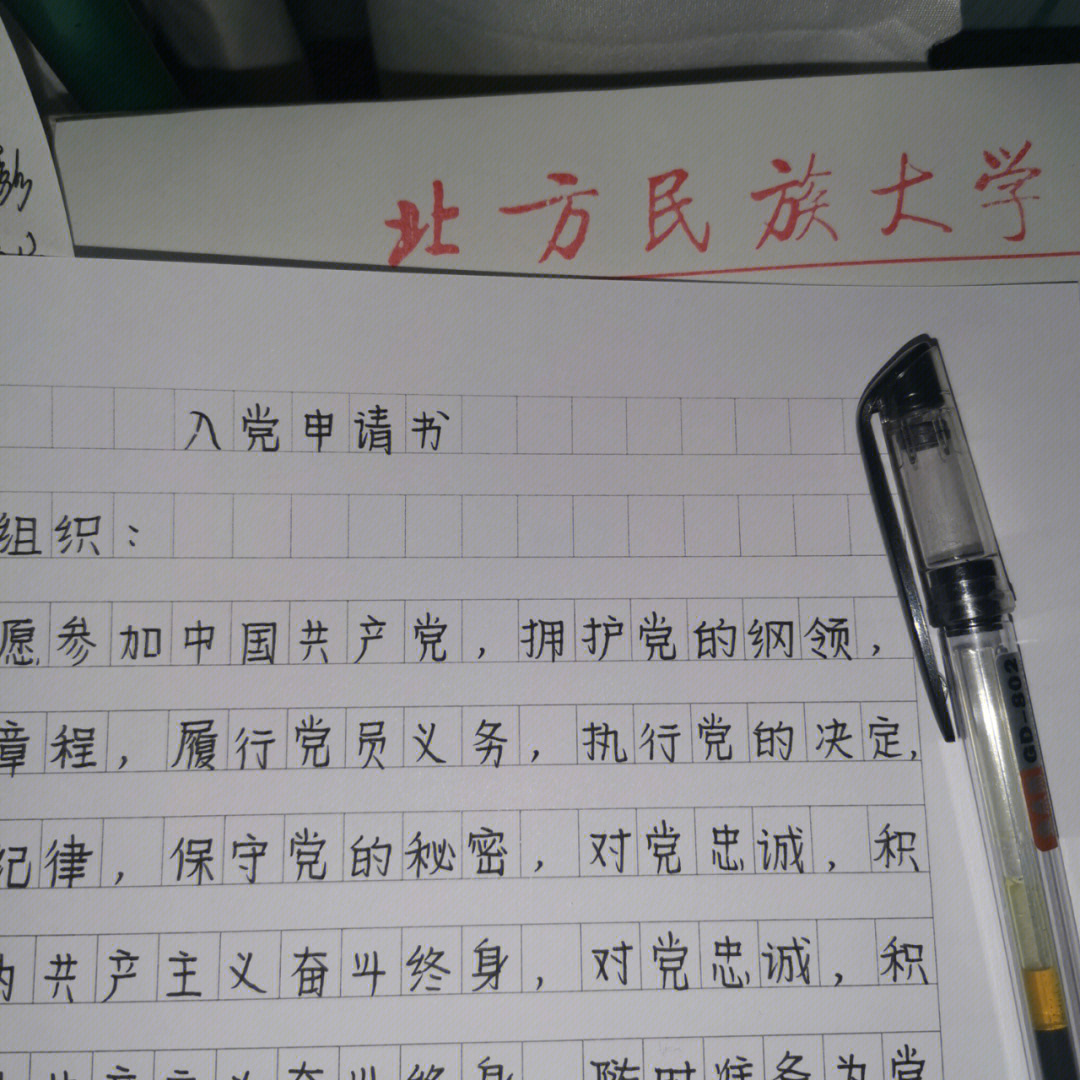 北方民族大学
入党申请书
组织：
愿参加中国共产党，拥护党的纲领，
章程，履行党员义务，执行党的决定，
纪律，保守党的秘密，对党忠诚，积
为共产主义奋斗终身，对党忠诚，积
共产主义奋斗终身，随时准备为党
GD-802